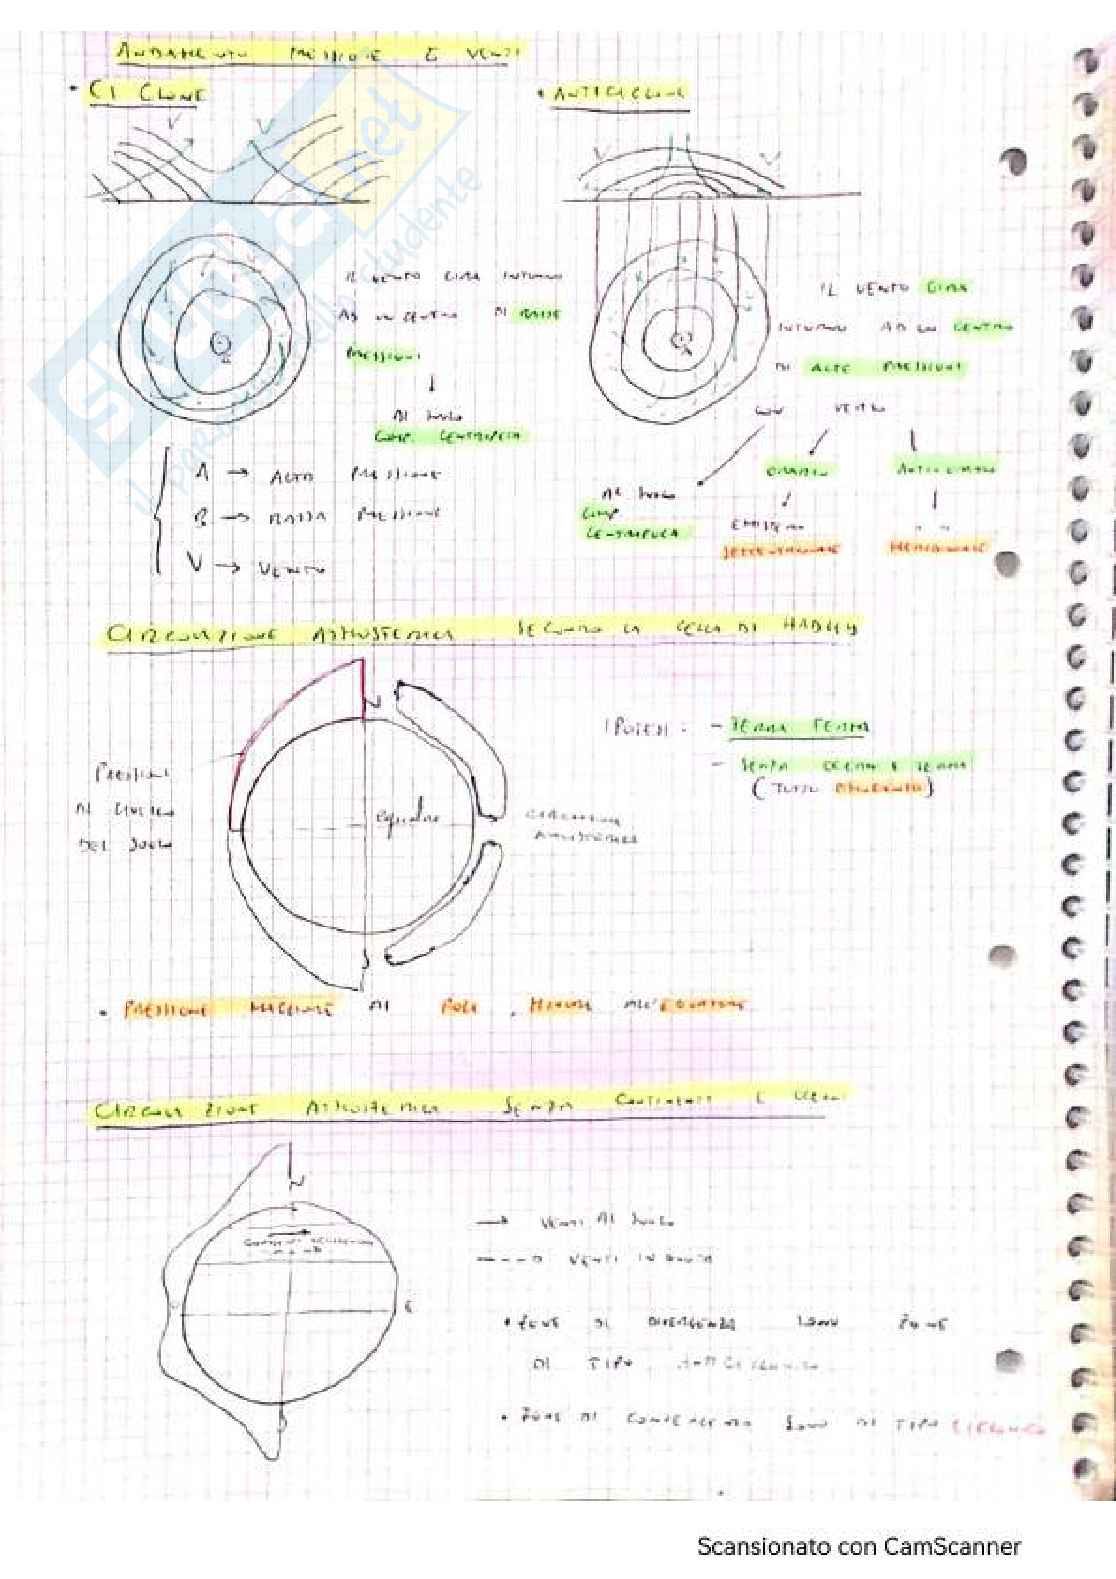 ANDAMENTO PRESSIONE E VENTI
• CICLONE
• ANTICICLONE
V V
V V
IL VENTO GIRA INTORNO
AD UN CENTRO DI BASSE
PRESSIONI
↓
AL SUOLO
COMP. CENTRIPETA
B
IL VENTO GIRA
INTORNO AD UN CENTRO
DI ALTE PRESSIONI
CON VERSO
ORARIO
ANTIORARIO
AL SUOLO
COMP
CENTRIPETA
EMISFERO
SETTENTRIONALE
" "
MERIDIONALE
A → ALTA PRESSIONE
B → BASSA PRESSIONE
V → VENTO
CIRCOLAZIONE ATMOSFERICA SECONDO LA CELLA DI HADLEY
N
PRESSIONI
AL LIVELLO
DEL SUOLO
equatore
CIRCOLAZIONE
ATMOSFERICA
S
IPOTESI: - TERRA FERMA
- SENZA OCEANI E TERRA
(TUTTO OMOGENEO)
• PRESSIONE MAGGIORE AI POLI, MINORE ALL'EQUATORE
CIRCOLAZIONE ATMOSFERICA SENZA CONTINENTI E OCEANI
N
E
S
→ VENTI AL SUOLO
VENTI IN QUOTA
• ZONE DI DIVERGENZA SONO ZONE
DI TIPO ANTICICLONICO
• ZONE DI CONVERGENZA SONO DI TIPO CICLONICO
Skuola.net
Il paradiso dello studente
Scansionato con CamScanner